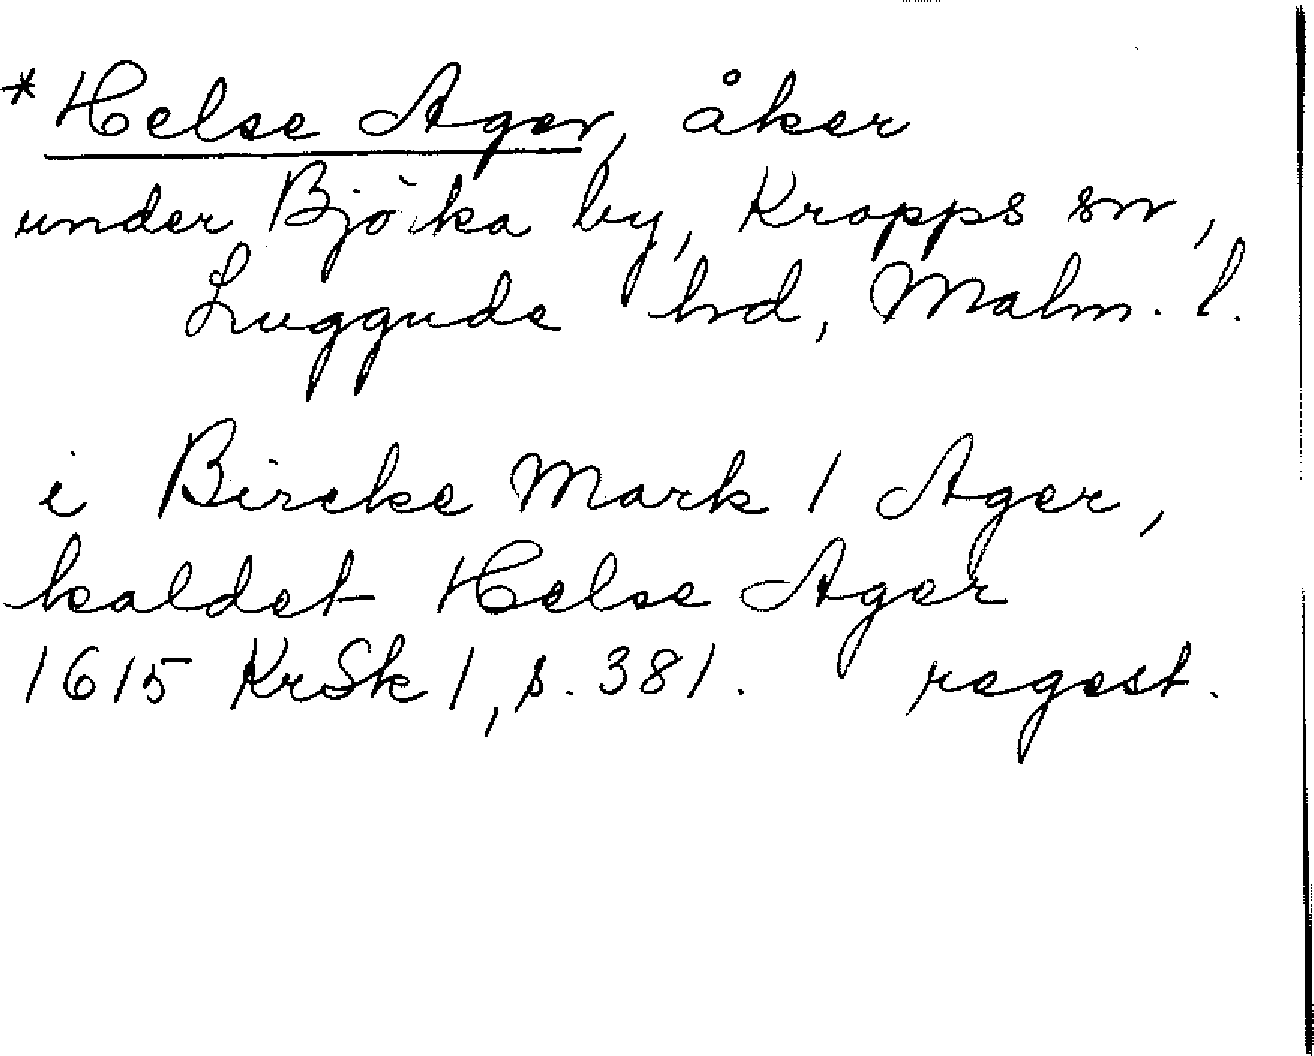 *Helse Ager, åker
under Bjöka by, Kropps sn,
Luggude hrd, Malm. l.
i Bircke Mark 1 Ager,
kaldet Helse Ager
1615 KrSk 1, s. 381. regest.